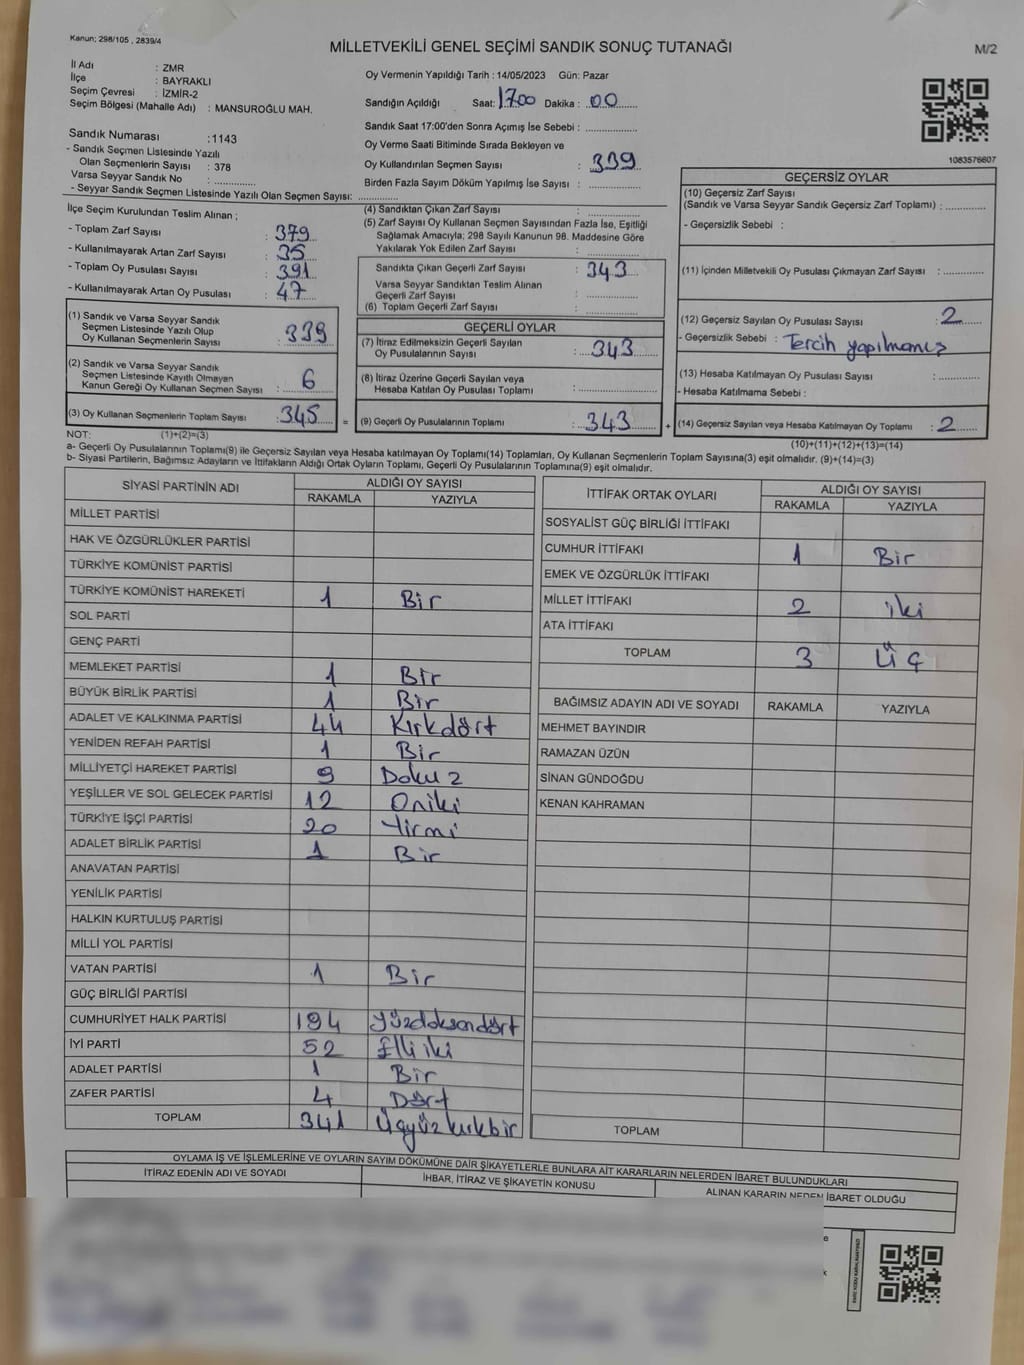 Kanun; 298/105 , 2839/4
MİLLETVEKİLİ GENEL SEÇİMİ SANDIK SONUÇ TUTANAĞI
M/2
İl Adı : ZMR
İlçe : BAYRAKLI
Seçim Çevresi : İZMİR-2
Seçim Bölgesi (Mahalle Adı) : MANSUROĞLU MAH.
Sandık Numarası :1143
- Sandık Seçmen Listesinde Yazılı
Olan Seçmenlerin Sayısı : 378
Varsa Seyyar Sandık No : ..............
- Seyyar Sandık Seçmen Listesinde Yazılı Olan Seçmen Sayısı: ..............
Oy Vermenin Yapıldığı Tarih : 14/05/2023 Gün: Pazar
Sandığın Açıldığı Saat: 1700 Dakika : 00
Sandık Saat 17:00'den Sonra Açımış İse Sebebi : ..............
Oy Verme Saati Bitiminde Sırada Bekleyen ve
Oy Kullandırılan Seçmen Sayısı : 339
Birden Fazla Sayım Döküm Yapılmış İse Sayısı : ..............
1083576607
İlçe Seçim Kurulundan Teslim Alınan ;
- Toplam Zarf Sayısı : 379
- Kullanılmayarak Artan Zarf Sayısı : 35
- Toplam Oy Pusulası Sayısı : 391
- Kullanılmayarak Artan Oy Pusulası : 47
(1) Sandık ve Varsa Seyyar Sandık
Seçmen Listesinde Yazılı Olup
Oy Kullanan Seçmenlerin Sayısı : 339
(2) Sandık ve Varsa Seyyar Sandık
Seçmen Listesinde Kayıtlı Olmayan
Kanun Gereği Oy Kullanan Seçmen Sayısı : 6
(3) Oy Kullanan Seçmenlerin Toplam Sayısı : 345 =
(4) Sandıktan Çıkan Zarf Sayısı : ..............
(5) Zarf Sayısı Oy Kullanan Seçmen Sayısından Fazla İse, Eşitliği
Sağlamak Amacıyla; 298 Sayılı Kanunun 98. Maddesine Göre
Yakılarak Yok Edilen Zarf Sayısı : ..............
Sandıkta Çıkan Geçerli Zarf Sayısı : 343
Varsa Seyyar Sandıktan Teslim Alınan
Geçerli Zarf Sayısı : ..............
(6) Toplam Geçerli Zarf Sayısı : ..............
GEÇERLİ OYLAR
(7) İtiraz Edilmeksizin Geçerli Sayılan
Oy Pusulalarının Sayısı : 343
(8) İtiraz Üzerine Geçerli Sayılan veya
Hesaba Katılan Oy Pusulası Toplamı : ..............
(9) Geçerli Oy Pusulalarının Toplamı : 343 +
GEÇERSİZ OYLAR
(10) Geçersiz Zarf Sayısı
(Sandık ve Varsa Seyyar Sandık Geçersiz Zarf Toplamı) : ..............
- Geçersizlik Sebebi :
(11) İçinden Milletvekili Oy Pusulası Çıkmayan Zarf Sayısı : ..............
(12) Geçersiz Sayılan Oy Pusulası Sayısı : 2
- Geçersizlik Sebebi : Tercih yapılmamış
(13) Hesaba Katılmayan Oy Pusulası Sayısı : ..............
- Hesaba Katılmama Sebebi :
(14) Geçersiz Sayılan veya Hesaba Katılmayan Oy Toplamı : 2
(10)+(11)+(12)+(13)=(14)
NOT: (1)+(2)=(3)
a- Geçerli Oy Pusulalarının Toplamı(9) ile Geçersiz Sayılan veya Hesaba katılmayan Oy Toplamı(14) Toplamları, Oy Kullanan Seçmenlerin Toplam Sayısına(3) eşit olmalıdır. (9)+(14)=(3)
b- Siyasi Partilerin, Bağımsız Adayların ve İttifakların Aldığı Ortak Oyların Toplamı, Geçerli Oy Pusulalarının Toplamına(9) eşit olmalıdır.
SİYASİ PARTİNİN ADI ALDIĞI OY SAYISI
RAKAMLA YAZIYLA
MİLLET PARTİSİ
HAK VE ÖZGÜRLÜKLER PARTİSİ
TÜRKİYE KOMÜNİST PARTİSİ
TÜRKİYE KOMÜNİST HAREKETİ 1 Bir
SOL PARTİ
GENÇ PARTİ
MEMLEKET PARTİSİ 1 Bir
BÜYÜK BİRLİK PARTİSİ 1 Bir
ADALET VE KALKINMA PARTİSİ 44 Kırkdört
YENİDEN REFAH PARTİSİ 1 Bir
MİLLİYETÇİ HAREKET PARTİSİ 9 Dokuz
YEŞİLLER VE SOL GELECEK PARTİSİ 12 Oniki
TÜRKİYE İŞÇİ PARTİSİ 20 Yirmi
ADALET BİRLİK PARTİSİ 1 Bir
ANAVATAN PARTİSİ
YENİLİK PARTİSİ
HALKIN KURTULUŞ PARTİSİ
MİLLİ YOL PARTİSİ
VATAN PARTİSİ 1 Bir
GÜÇ BİRLİĞİ PARTİSİ
CUMHURİYET HALK PARTİSİ 194 Yüzdoksandört
İYİ PARTİ 52 Elli iki
ADALET PARTİSİ 1 Bir
ZAFER PARTİSİ 4 Dört
TOPLAM 341 Üçyüzkırkbir
İTTİFAK ORTAK OYLARI ALDIĞI OY SAYISI
RAKAMLA YAZIYLA
SOSYALİST GÜÇ BİRLİĞİ İTTİFAKI
CUMHUR İTTİFAKI 1 Bir
EMEK VE ÖZGÜRLÜK İTTİFAKI
MİLLET İTTİFAKI 2 iki
ATA İTTİFAKI
TOPLAM 3 Üç
BAĞIMSIZ ADAYIN ADI VE SOYADI RAKAMLA YAZIYLA
MEHMET BAYINDIR
RAMAZAN ÜZÜN
SİNAN GÜNDOĞDU
KENAN KAHRAMAN
TOPLAM
OYLAMA İŞ VE İŞLEMLERİNE VE OYLARIN SAYIM DÖKÜMÜNE DAİR ŞİKAYETLERLE BUNLARA AİT KARARLARIN NELERDEN İBARET BULUNDUKLARI
İTİRAZ EDENİN ADI VE SOYADI İHBAR, İTİRAZ VE ŞİKAYETİN KONUSU ALINAN KARARIN NEDEN İBARET OLDUĞU